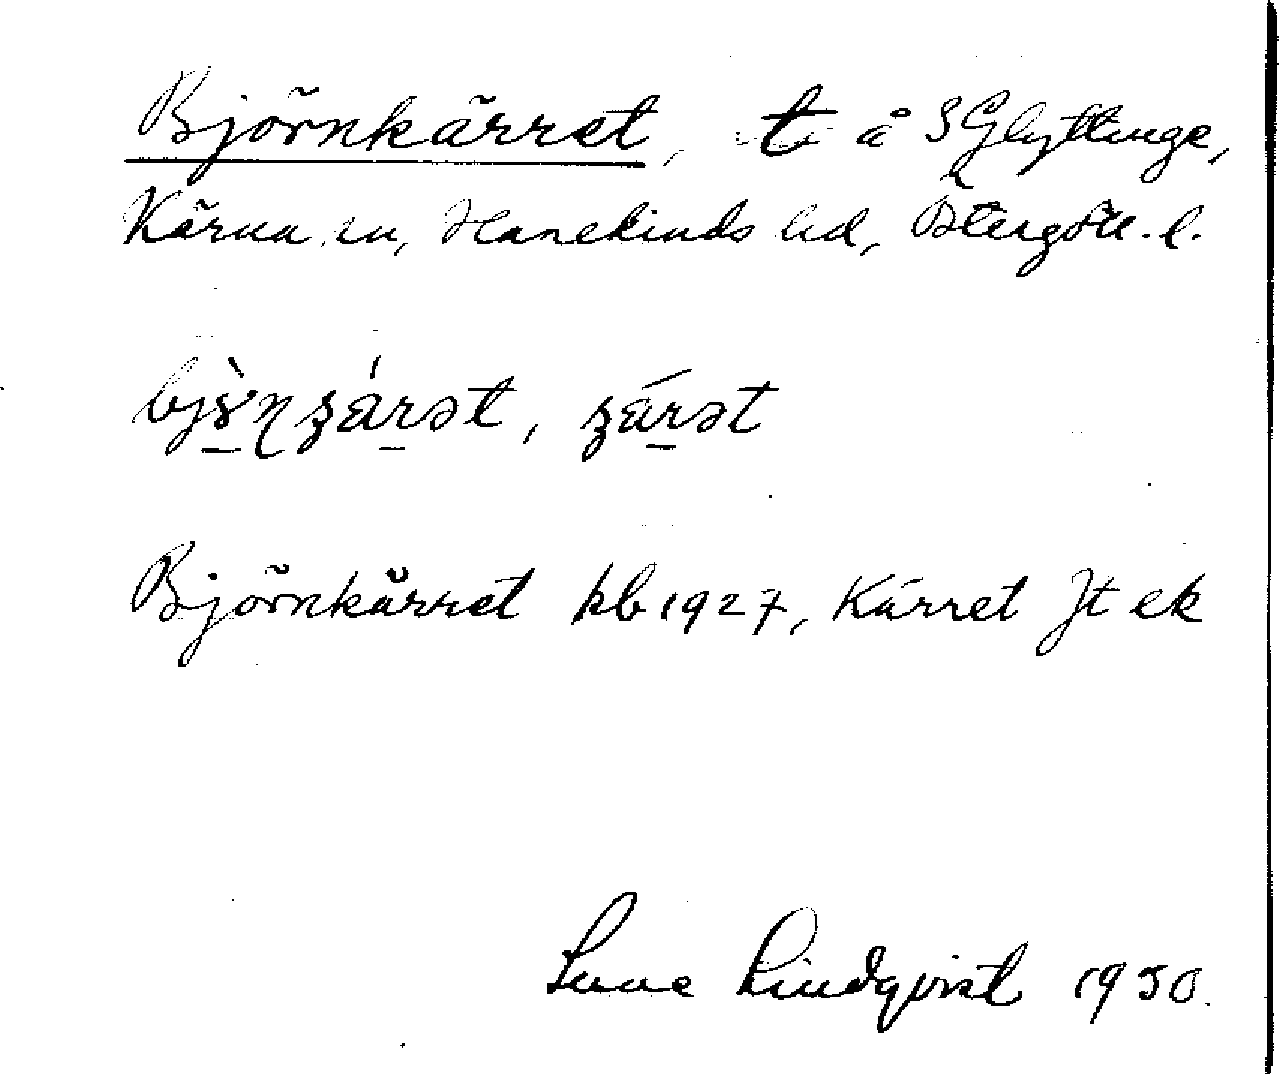 Björnkärret, t å S Glyttinge,
Kärna sn, Hanekinds hd, Östergötl. l.
bjɤ̀ɳʒárət, ʒárət
Björnkärret kb 1927, Kärret Jt ek
Sune Lindqvist 1930.